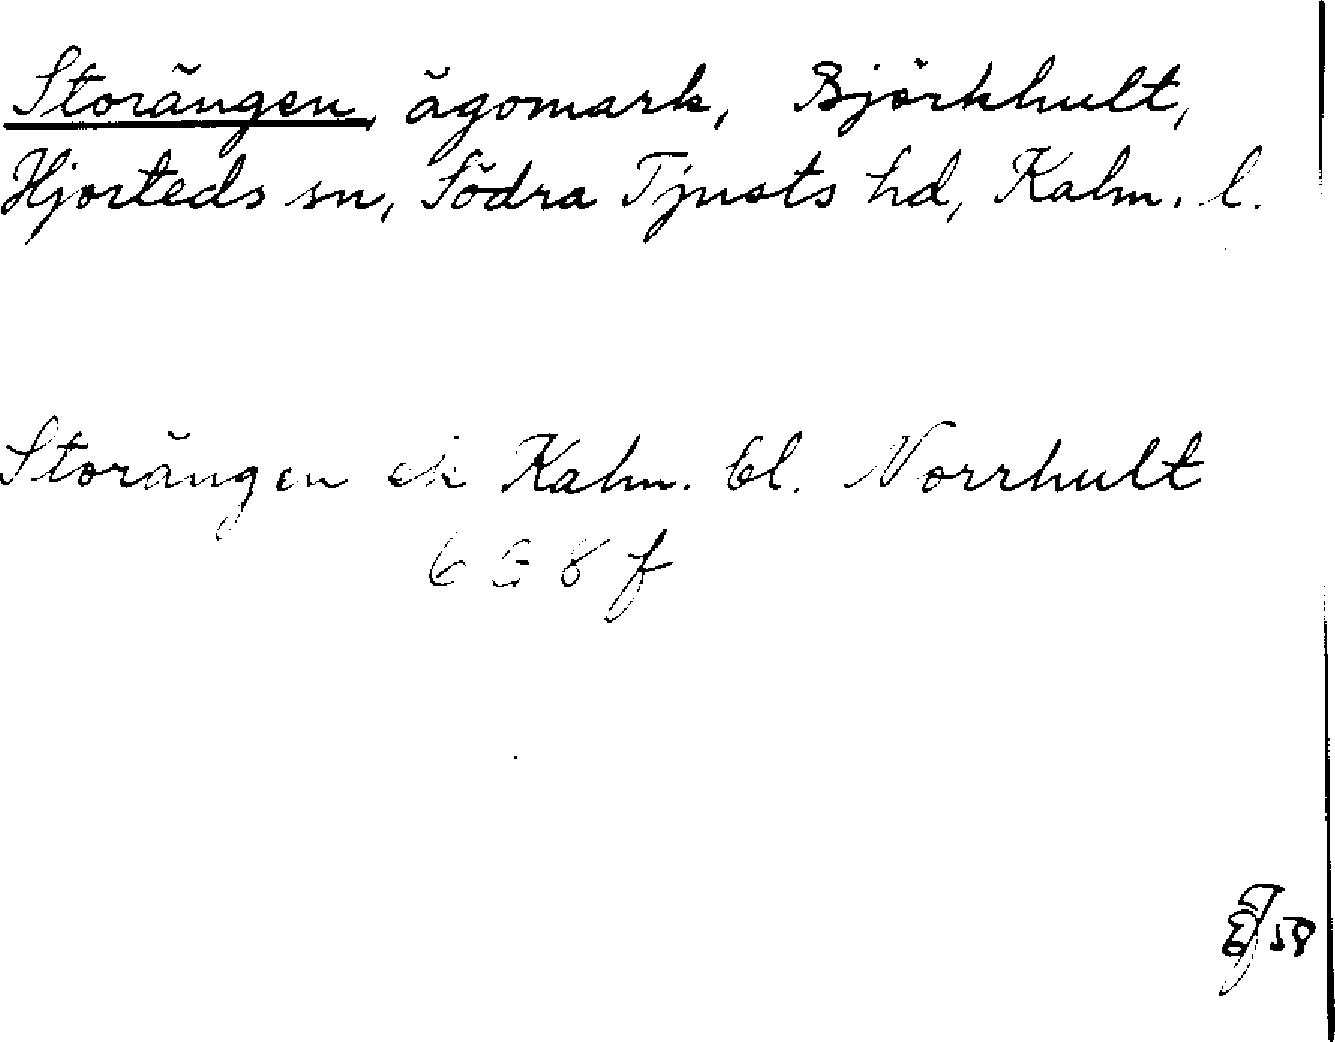 Storängen, ägomark, Björkhult,
Hjorteds sn, Södra Tjusts hd, Kalm. l.
Storängen ek Kalm. bl. Norrhult
6 G 8 f